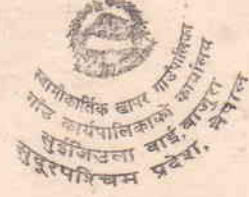 स्वामीकार्तिक खापर गाउँपालिका
गाँउ कार्यपालिकाको कार्यालय
वाई, बाजुरा
सुदूरपश्चिम प्रदेश, नेपाल